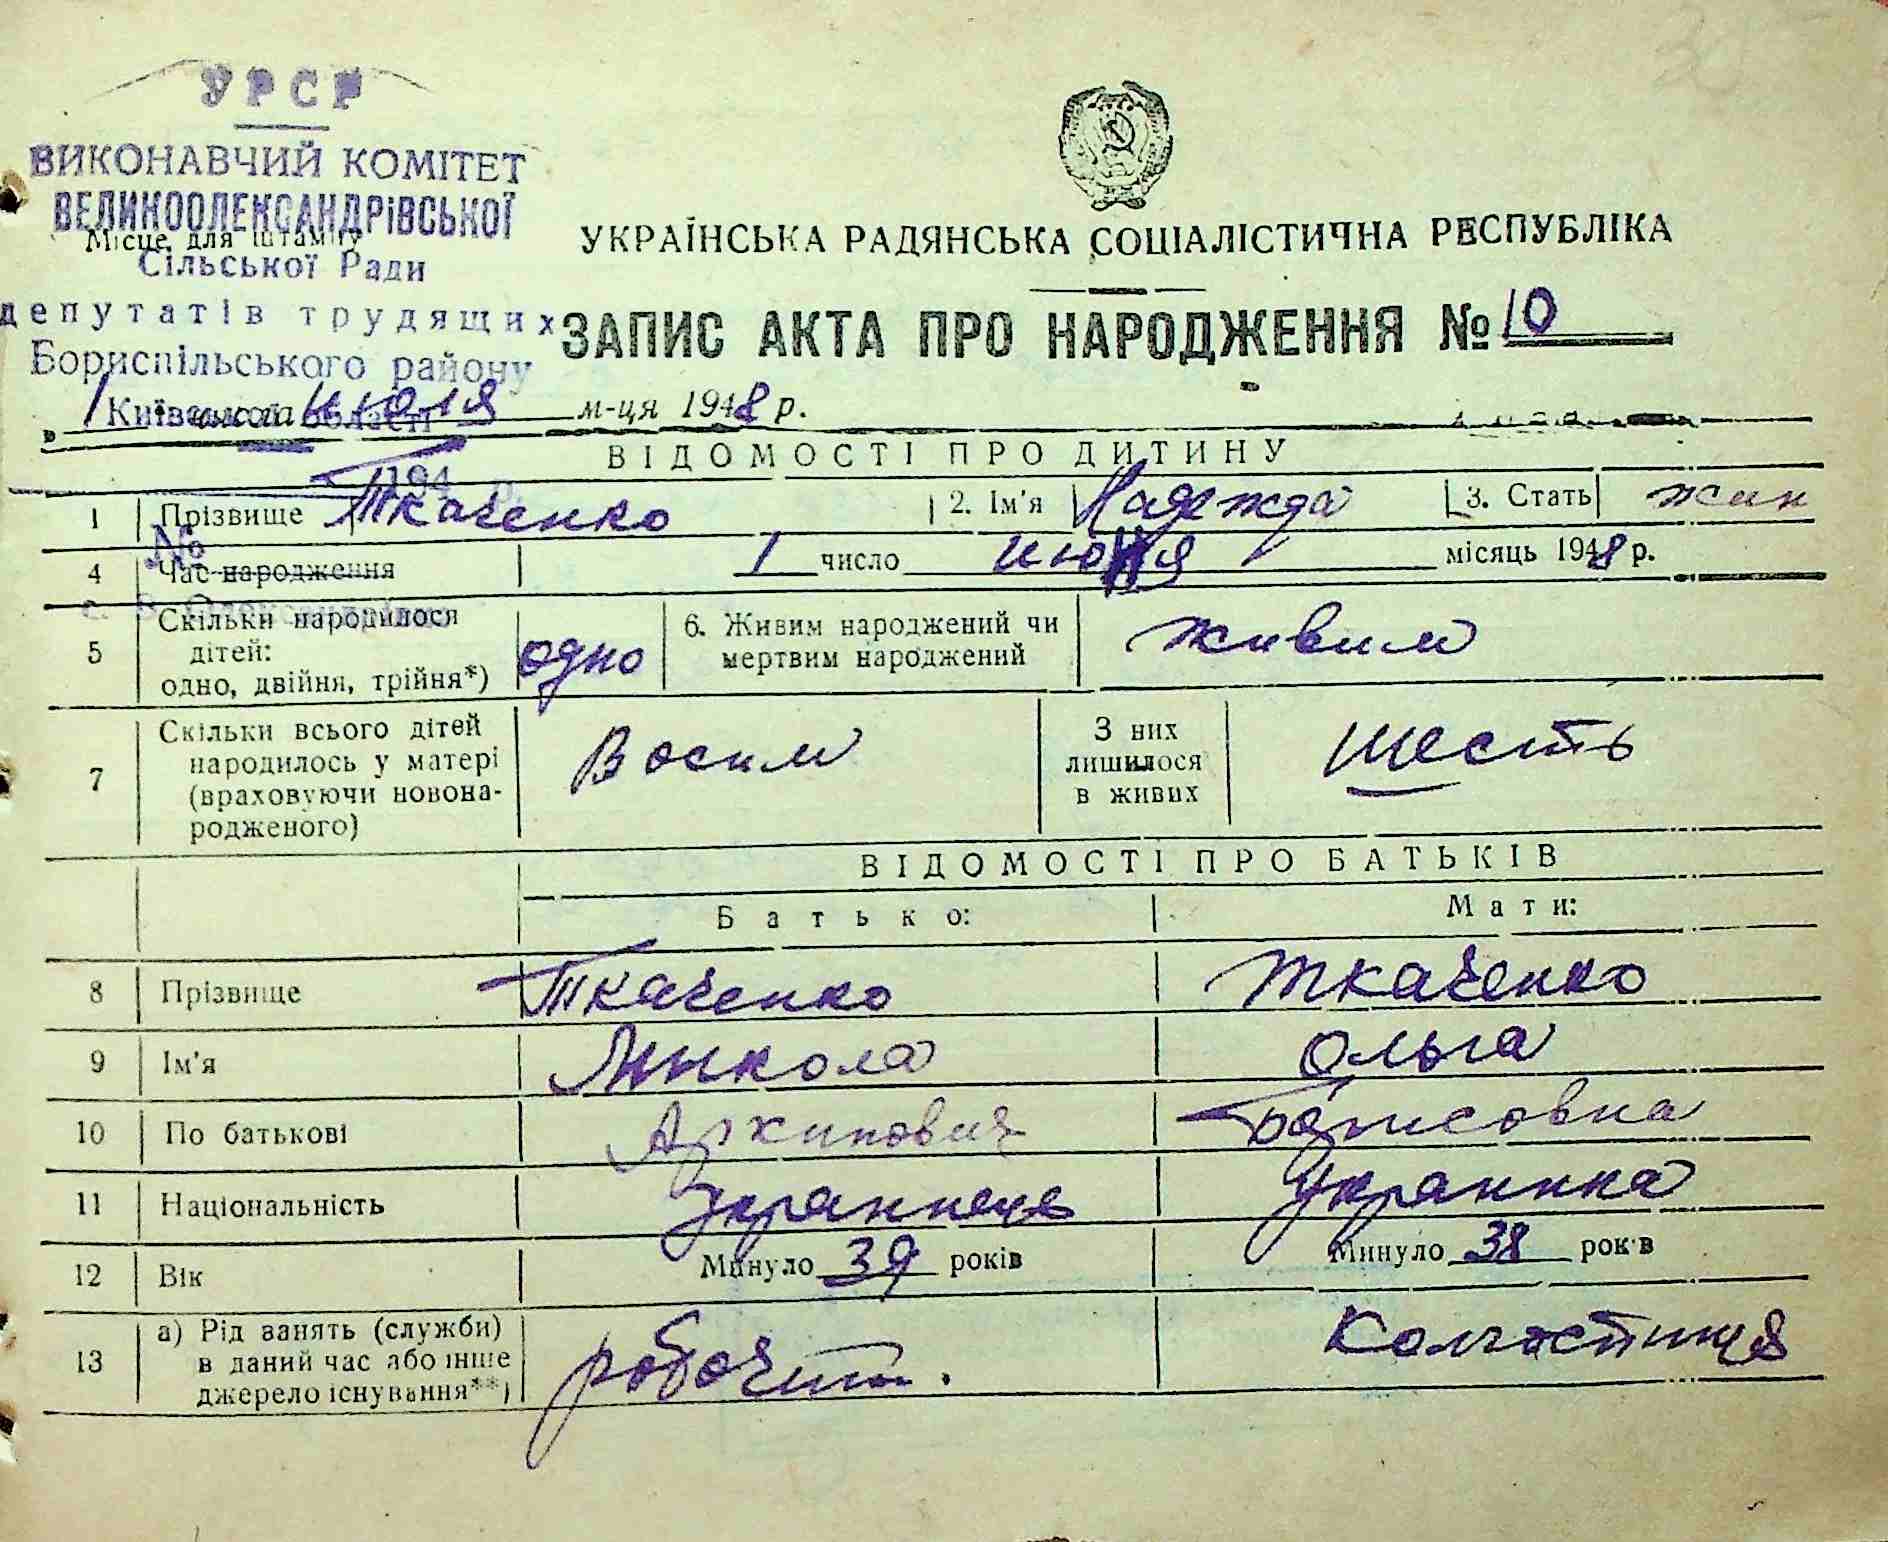 УРСР
ВИКОНАВЧИЙ КОМІТЕТ
ВЕЛИКООЛЕКСАНДРІВСЬКОЇ
Місце для штампу
Сільської Ради
депутатів трудящих
Бориспільського району
Київської області
194 р.
№
с. В. Олександрівка
УКРАЇНСЬКА РАДЯНСЬКА СОЦІАЛІСТИЧНА РЕСПУБЛІКА
ЗАПИС АКТА ПРО НАРОДЖЕННЯ № 10
1 числа июля м-ця 1948 р.
ВІДОМОСТІ ПРО ДИТИНУ
1 Прізвище Ткаченко 2. Ім'я Надежда 3. Стать жин
4 Час народження 1 число июня місяць 1948 р.
5 Скільки народилося дітей: одно, двійня, трійня*) одно 6. Живим народжений чи мертвим народжений живим
7 Скільки всього дітей народилось у матері (враховуючи новонародженого) Восим З них лишилося в живих шесть
ВІДОМОСТІ ПРО БАТЬКІВ
Батько: Мати:
8 Прізвище Ткаченко Ткаченко
9 Ім'я Микола Ольга
10 По батькові Архипович Борисовна
11 Національність Украинець Украинка
12 Вік Минуло 39 років Минуло 38 років
13 а) Рід занять (служби) в даний час або інше джерело існування**) робочий. Колгостиця